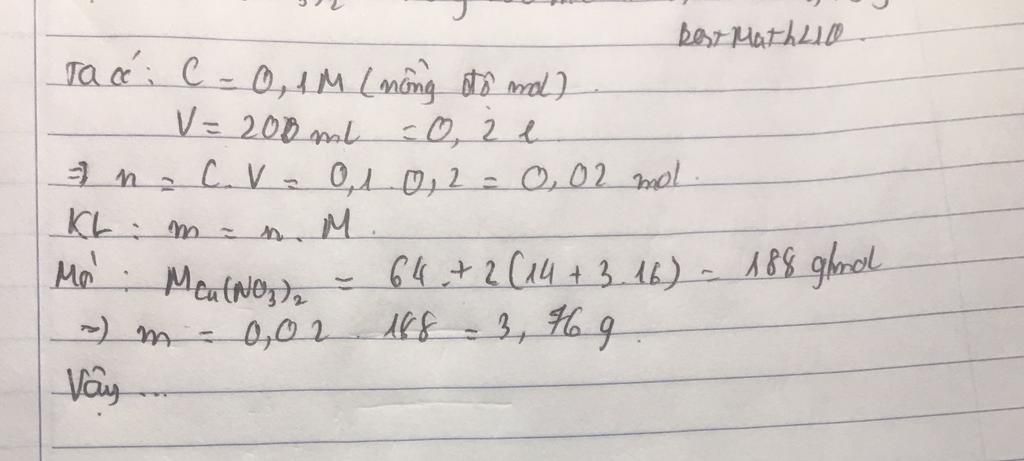 BestMathLIO
Ta có: C = 0,1M (nồng độ mol)
V = 200 ml = 0,2 l
⇒ n = C.V = 0,1.0,2 = 0,02 mol.
KL: m = n.M.
Mà: M Cu(NO3)2 = 64 + 2(14 + 3.16) = 188 g/mol
⇒ m = 0,02 . 188 = 3,76 g.
Vậy...